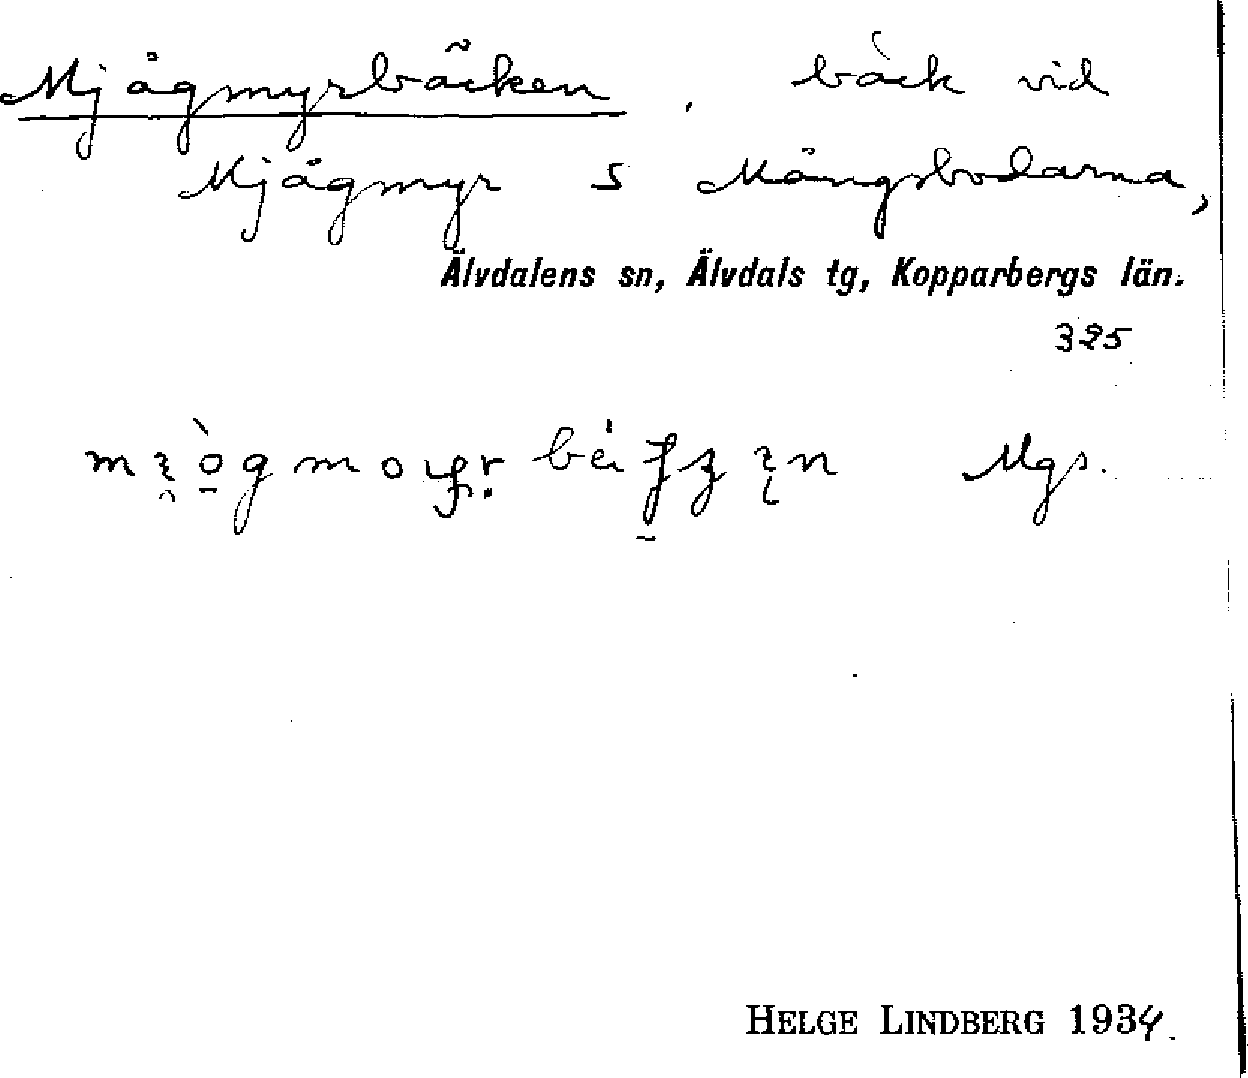 Mjågmyrbäcken, bäck vid
Mjågmyr S Mångsbodarna,
Älvdalens sn, Älvdals tg, Kopparbergs län.
325
Mgs.
HELGE LINDBERG 1934